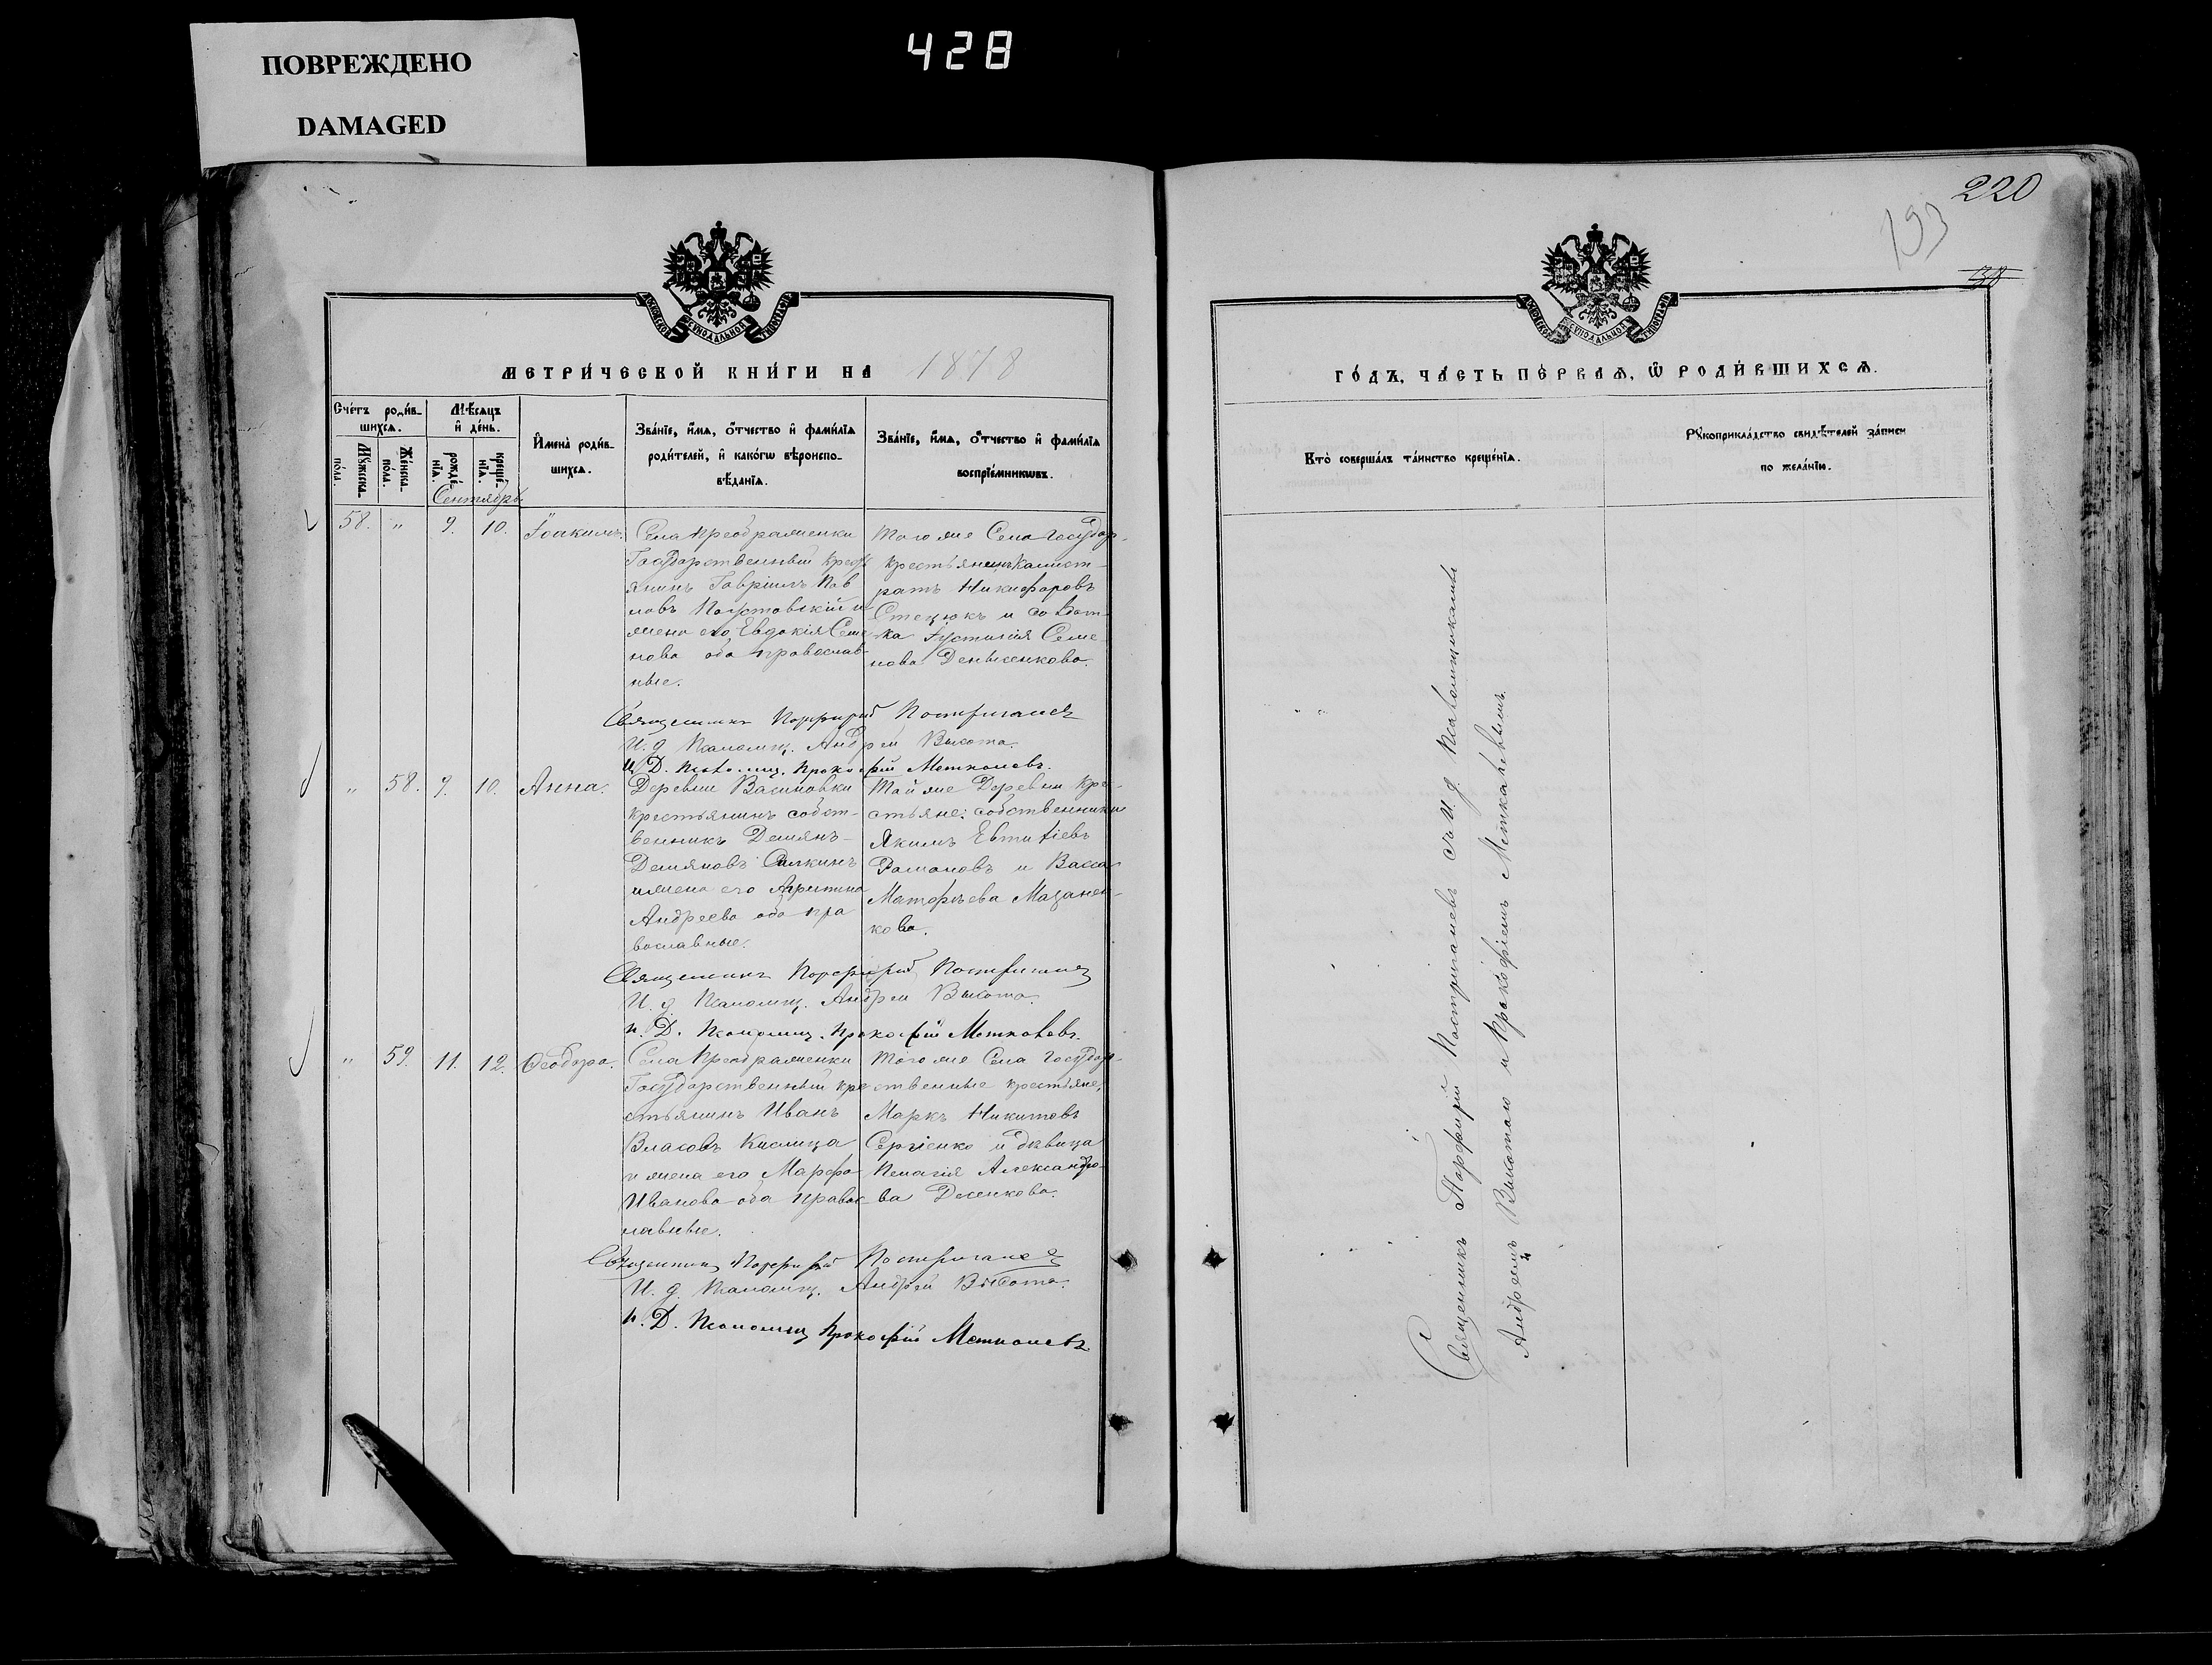 ПОВРЕЖДЕНО
DAMAGED
428
220
193
38
МЕТРИ́ЧЕСКОЙ КНИ́ГИ НА 1878
ГО́ДЪ, ЧА́СТЬ ПЕ́РВАѦ, Ѿ РОДИ́ВШИХСѦ.
Сче́тъ роди́вшихсѧ.
Мꙋ́жеска пола̀.
Же́нска пола̀.
Мѣ́сѧцъ и҆ де́нь.
рожде́нїѧ.
креще́нїѧ.
И҆мена̀ роди́вшихсѧ.
Зва́нїе, и҆́мѧ, ѻ҆́тчество и҆ фами́лїѧ
роди́телей, и҆ како́гѡ вѣроиспо-
вѣ́данїѧ.
Зва́нїе, и҆́мѧ, ѻ҆́тчество и҆ фами́лїѧ
воспрїе́мникѡвъ.
Кто̀ соверша́лъ та́инство креще́нїѧ.
Рꙋкоприкла́дство свидѣ́телей за́писи
по жела́нїю.
Сентябрь
58. " 9. 10. Іоакимъ.
Села Преображенки
Государственный крест
янинъ Гавріилъ Пав
ловъ Полтовскій и
жена его Евдокія Семе
нова оба православ
ные.
Того же Села Государ-
крестьянинъ Калист-
ратъ Никифоровъ
Стецюкъ и
Іустинія Семе
нова Денисенкова.
Священникъ Порфирій Постригачевъ
И. д. Псаломщ. Андрей Высота.
И. Д. Псаломщ. Прокофій Меткалевъ.
" 58. 9. 10. Анна.
Деревни Васиновки
крестьянинъ собст-
венникъ Демянъ
Демяновъ Силкинъ
и жена его Агрипина
Андреева оба пра
вославные.
Той же Деревни кре-
стьяне: собственники
Якимъ Евтифіевъ
Романовъ и Васса
Матофѣева Мазанен-
кова.
Священникъ Порфирій Постригачевъ
И. д. Псаломщ. Андрей Высота.
И. Д. Псаломщ. Прокофій Меткалевъ.
" 59. 11. 12. Ѳеодора.
Села Преображенки
Государственный кре
стьянинъ Иванъ
Власовъ Кислица
и жена его Марфа
Иванова оба правос
лавные.
Того же Села Государ-
ственные крестьяне,
Маркъ Никитовъ
Сергіенко и дѣвица
Пелагія Александро-
ва Дененкова.
Священникъ Порфирій Постригачевъ
И. д. Псаломщ. Андрей Высота.
И. Д. Псаломщ Прокофій Меткалевъ
Священникъ Порфирій Постригачевъ съ И. д. Псаломщиками
Андреемъ Высотою и Прокофіемъ Меткалевымъ.